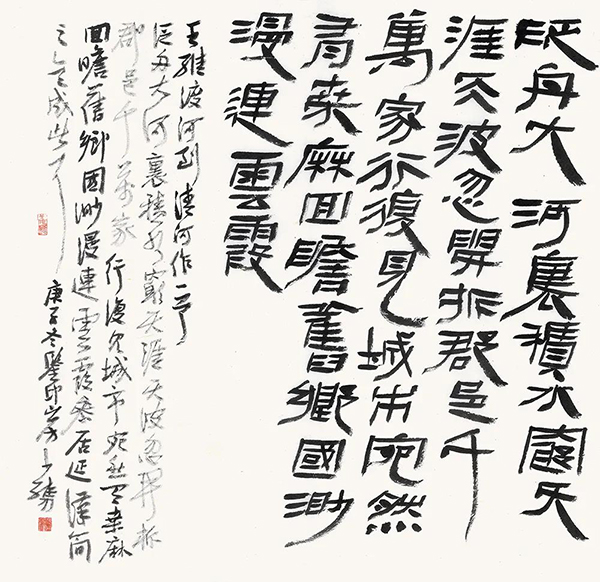 泛舟大河裏積水窮天
涯天波忽開拆郡邑千
萬家行復見城市宛然
有桑麻回瞻舊鄉國渺
漫連雲霞
王維渡河到清河作一首
泛舟大河裏積水窮天涯天波忽開拆
郡邑千萬家行復見城市宛然有桑麻
回瞻舊鄉國渺漫連雲霞參居延漢簡
之意成此
庚子冬鑒印山房